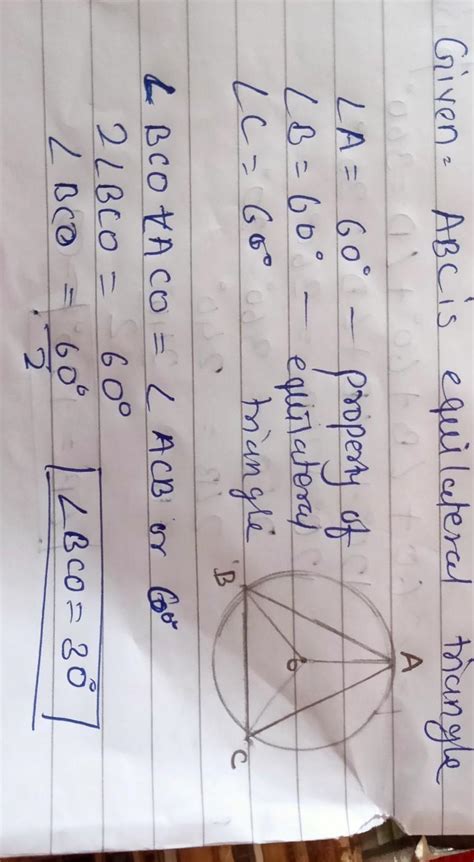 Given = ABC is equilateral triangle
∠A = 60° — property of
∠B = 60° — equilateral
∠C = 60° triangle
A
O
B
C
∠BCO + ACO = ∠ACB or 60°
2∠BCO = 60°
∠BCO = 60°/2
∠BCO = 30°